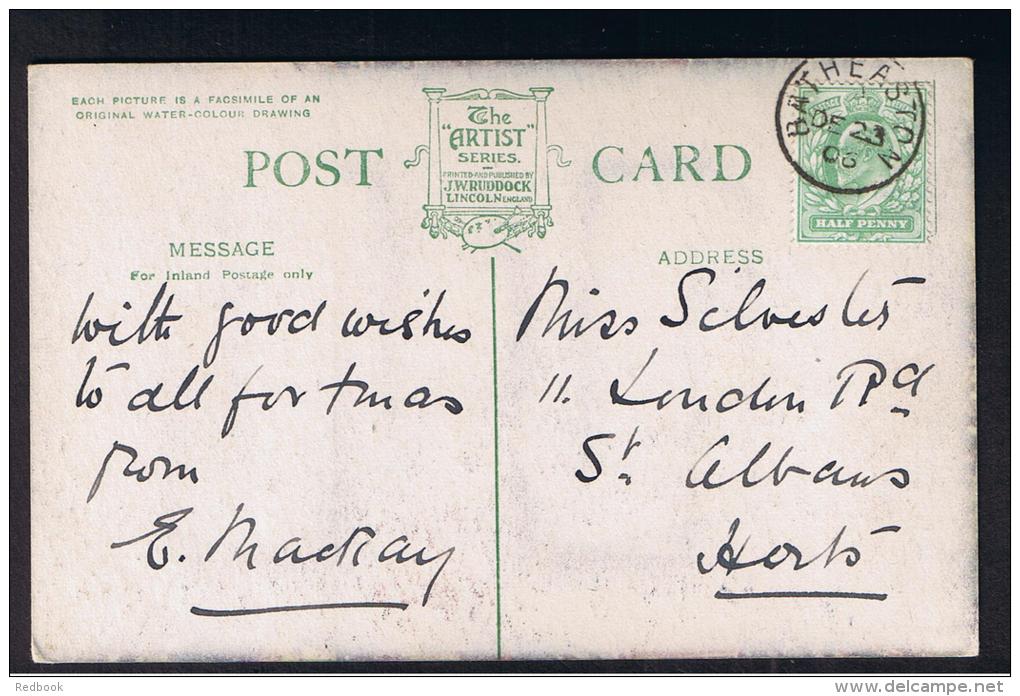 EACH PICTURE IS A FACSIMILE OF AN
ORIGINAL WATER-COLOUR DRAWING
POST CARD
The
"ARTIST"
SERIES.
PRINTED AND PUBLISHED BY
J.W.RUDDOCK
LINCOLN ENGLAND
BATHEASTON
DE 23
HALF PENNY
MESSAGE
For Inland Postage only
With good wishes
to all for Xmas
from
E. Mackay
ADDRESS
Miss Silvester
11. London Rd
St Albans
Herts
Redbook
delcampe.net